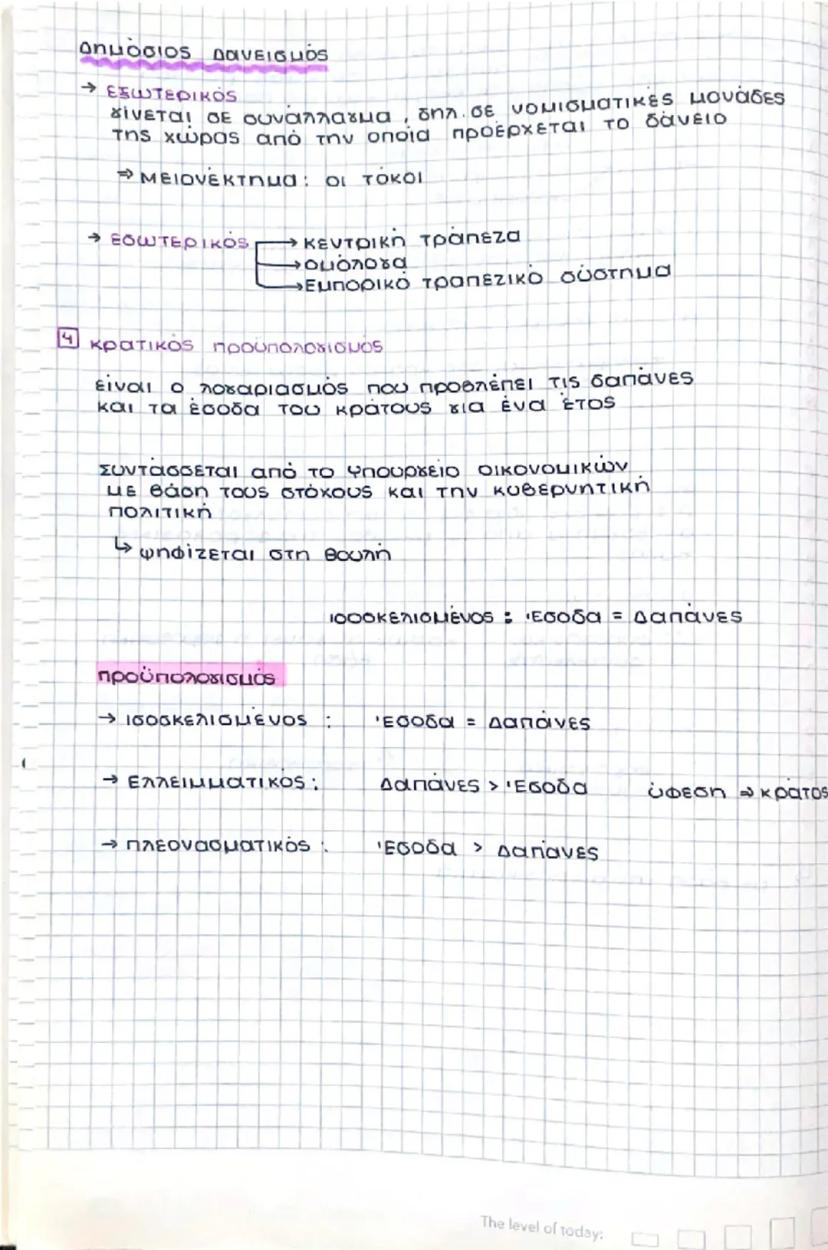 Δημόσιος Δανεισμός
→ Εξωτερικός
γίνεται σε συνάλλαγμα, δηλ. σε νομισματικές μονάδες
της χώρας από την οποία προέρχεται το δάνειο
⇒ Μειονέκτημα: οι τόκοι
→ Εσωτερικός → κεντρική τράπεζα
→ ομόλογα
→ Εμπορικό τραπεζικό σύστημα
4 κρατικός προϋπολογισμός
είναι ο λογαριασμός που προβλέπει τις δαπάνες
και τα έσοδα του κράτους για ένα έτος
Συντάσσεται από το Υπουργείο οικονομικών
με βάση τους στόχους και την κυβερνητική
πολιτική
↳ ψηφίζεται στη βουλή
ισοσκελισμένος : Έσοδα = Δαπάνες
προϋπολογισμός
→ ισοσκελισμένος : Έσοδα = Δαπάνες
→ Ελλειμματικός : Δαπάνες > Έσοδα ύφεση ⇒ κράτος
→ πλεονασματικός : Έσοδα > Δαπάνες
The level of today: